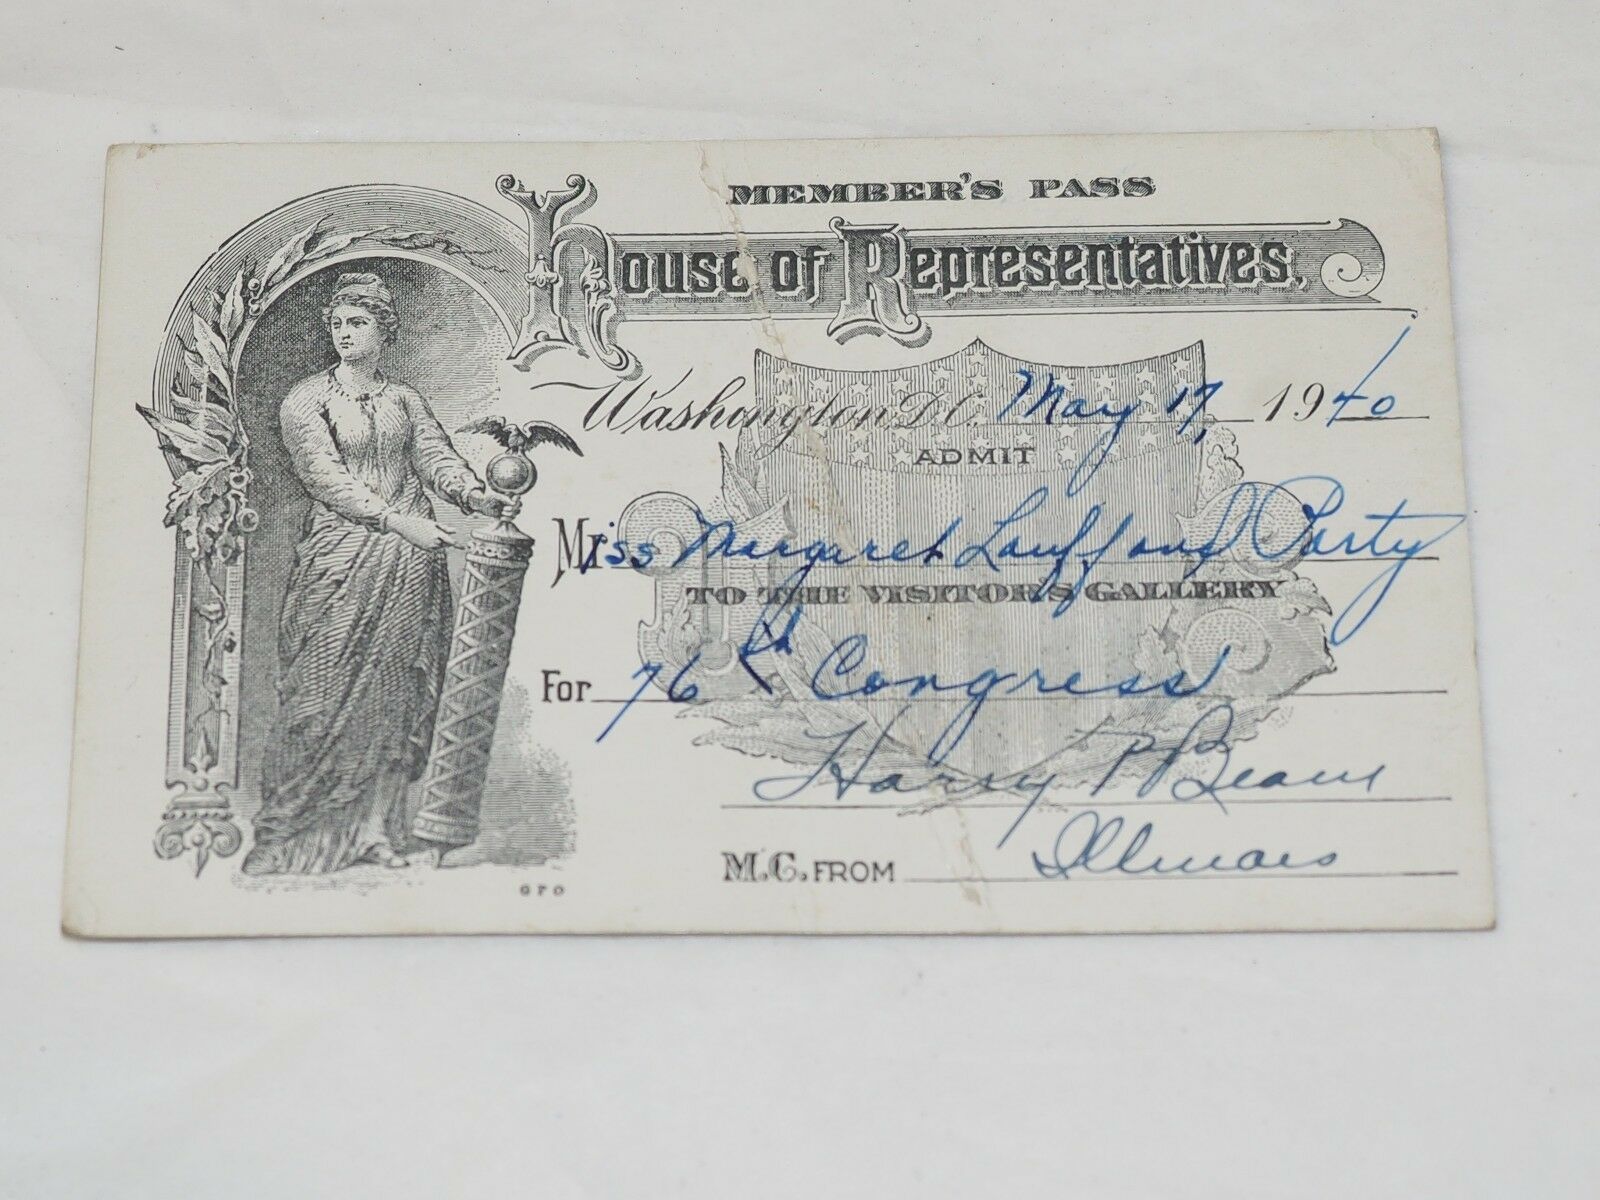 MEMBER'S PASS
House of Representatives,
Washington D.C. May 17, 1940
ADMIT
Miss Margaret Lauff and Party
TO THE VISITOR'S GALLERY
For 76th Congress
Harry P Beam
M.C. FROM Illinois
GPO